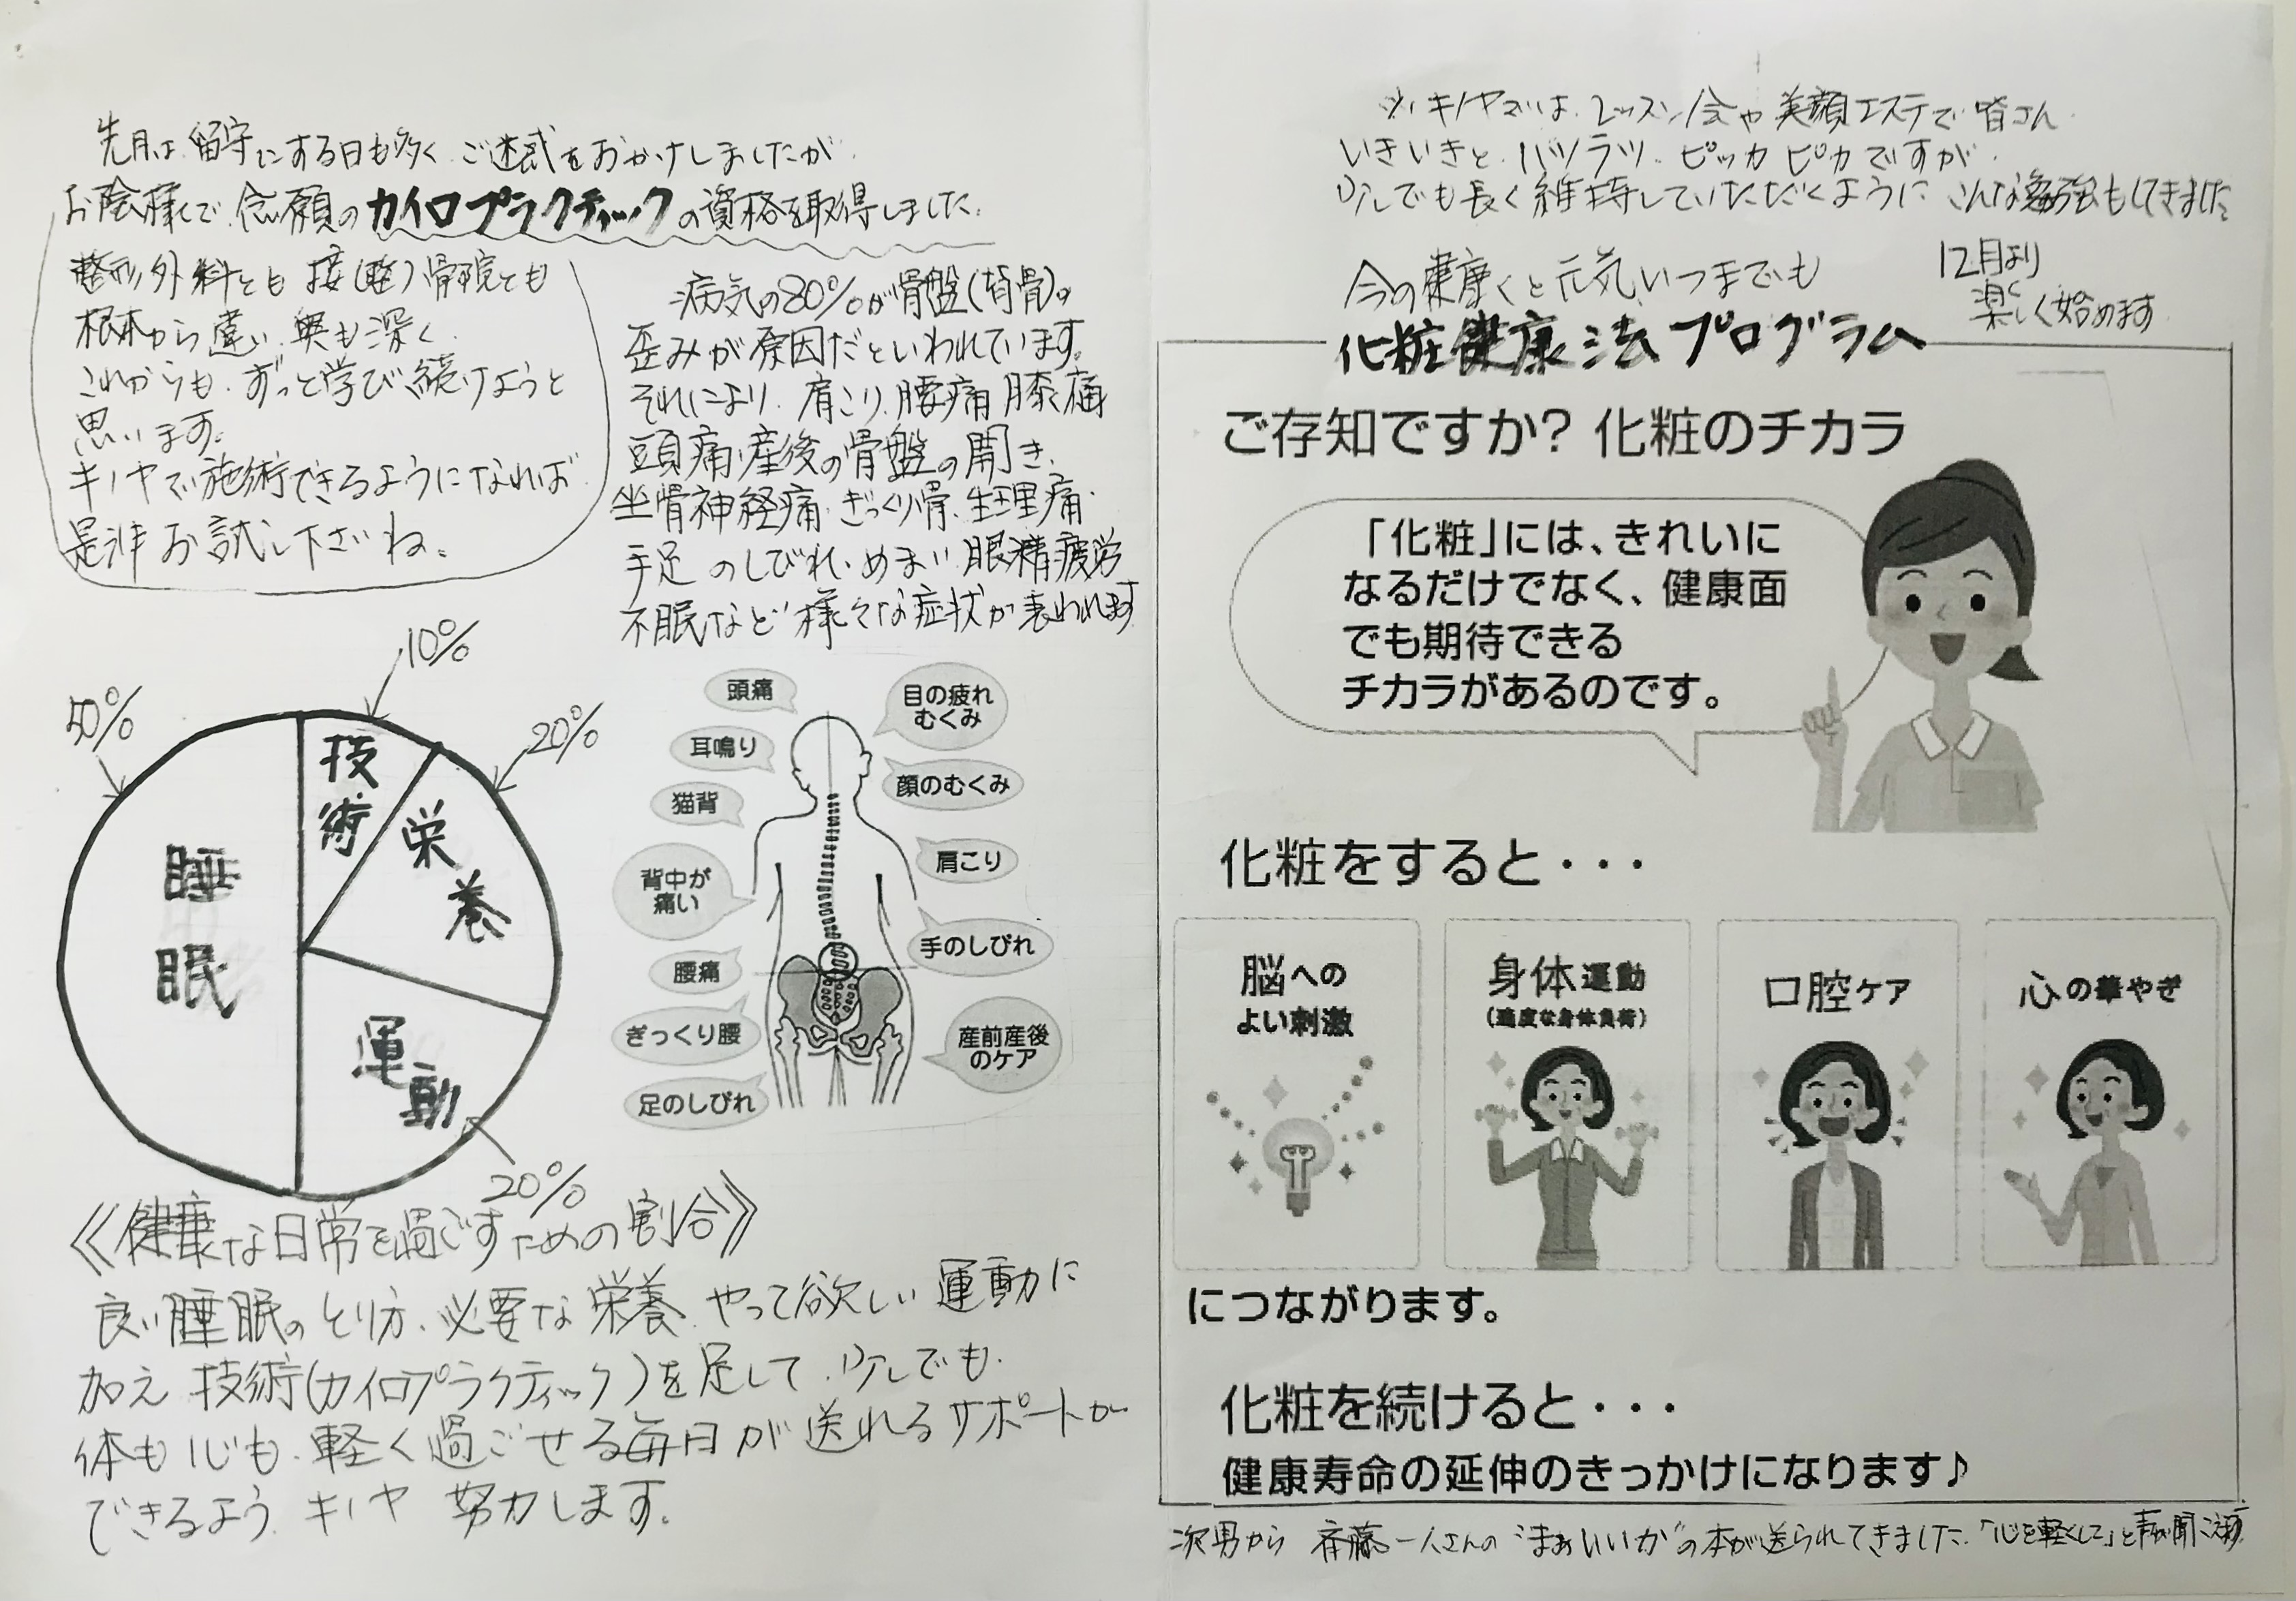 先月は留守にする日も多く ご迷惑をおかけしましたが
お陰様で 念願のカイロプラクティックの資格を取得しました。
整形外科とも 接(整)骨院とも
根本から違い 奥も深く
これからも、ずっと学び続けようと
思います。
キノヤで施術できるようになれば
是非お試し下さいね。
病気の80%が骨盤(背骨)の
歪みが原因だといわれています。
それにより、肩こり、腰痛 膝痛
頭痛・産後の骨盤の開き、
坐骨神経痛・ぎっくり骨、生理痛・
手足のしびれ、めまい 眼精疲労
不眠など 様々な症状が表われます
50%
10%
20%
20%
睡眠
技術
栄養
運動
頭痛
耳鳴り
猫背
背中が
痛い
腰痛
ぎっくり腰
足のしびれ
目の疲れ
むくみ
顔のむくみ
肩こり
手のしびれ
産前産後
のケア
《健康な日常を過ごすための割合》
良い睡眠のとり方、必要な栄養 やって欲しい運動に
加え 技術(カイロプラクティック)を足して、少しでも
体も心も、軽く過ごせる毎日が送れるサポートが
できるよう キノヤ 努力します。
※キノヤでは、レッスン会や美顔エステで皆さん
いきいきと、ハツラツ、ピッカピカですが、
少しでも長く維持していただくように こんな勉強もしてきました
今の健康と元気いつまでも
12月より
楽しく始めます
化粧健康法プログラム
ご存知ですか? 化粧のチカラ
「化粧」には、きれいに
なるだけでなく、健康面
でも期待できる
チカラがあるのです。
化粧をすると・・・
脳への
よい刺激
身体運動
(適度な身体負荷)
口腔ケア
心の華やぎ
につながります。
化粧を続けると・・・
健康寿命の延伸のきっかけになります♪
次男から 斉藤一人さんの"まぁいいか"の本が送られてきました。「心を軽くして」と声が聞こえ